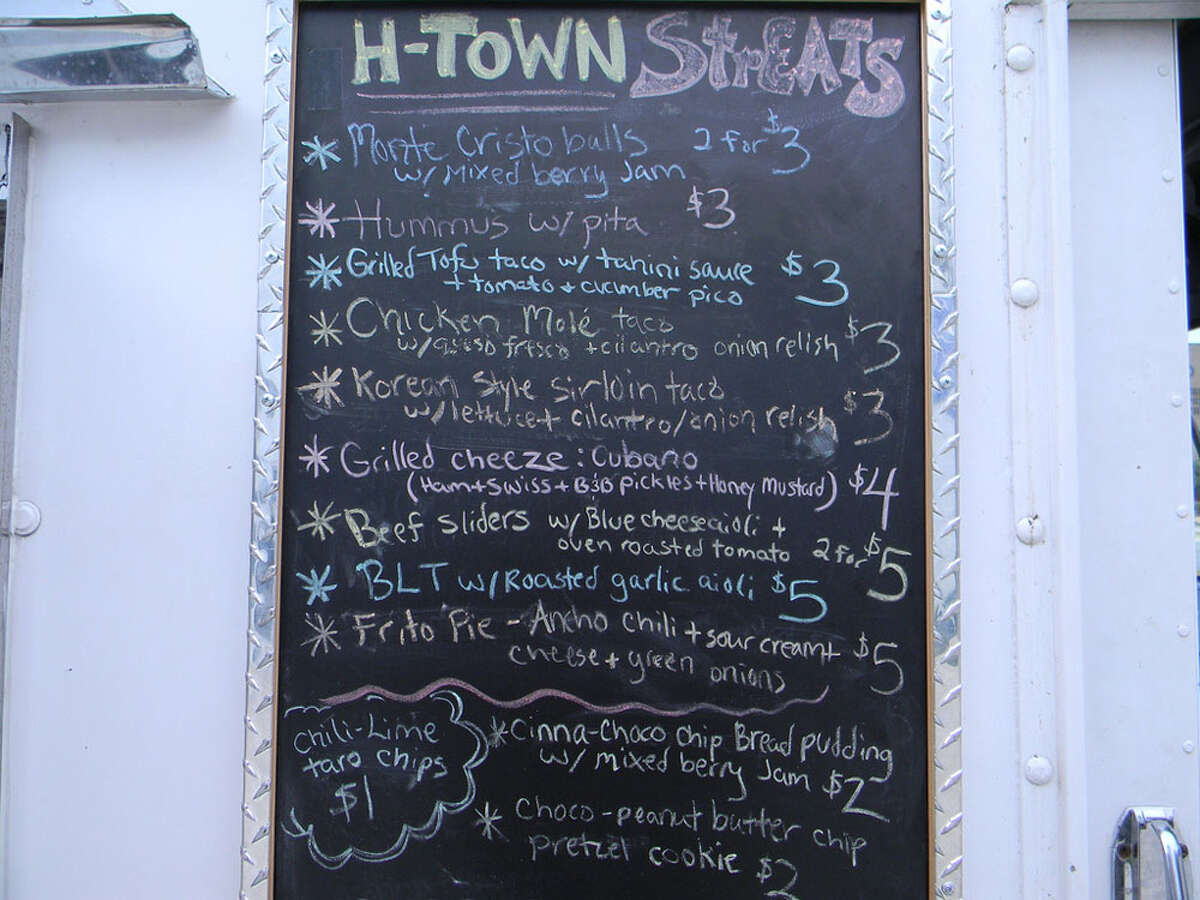 H-TOWN StrEATS
* Monte Cristo balls 2 for $3
w/ Mixed berry Jam
* Hummus w/ pita $3
* Grilled Tofu taco w/ tahini sauce $3
+ tomato + cucumber pico
* Chicken Molé taco $3
w/ queso fresco + cilantro onion relish
* Korean Style sirloin taco $3
w/ lettuce + cilantro/onion relish
* Grilled cheeze: Cubano $4
(Ham + Swiss + B&B pickles + Honey Mustard)
* Beef sliders w/ Blue cheese aioli +
oven roasted tomato 2 for $5
* BLT w/ Roasted garlic aioli $5
* Frito Pie - Ancho chili + sour cream + $5
cheese + green onions
Chili-Lime
taro chips
$1
* Cinna-Choco chip Bread pudding
w/ mixed berry Jam $2
* Choco-peanut butter chip
pretzel cookie $2